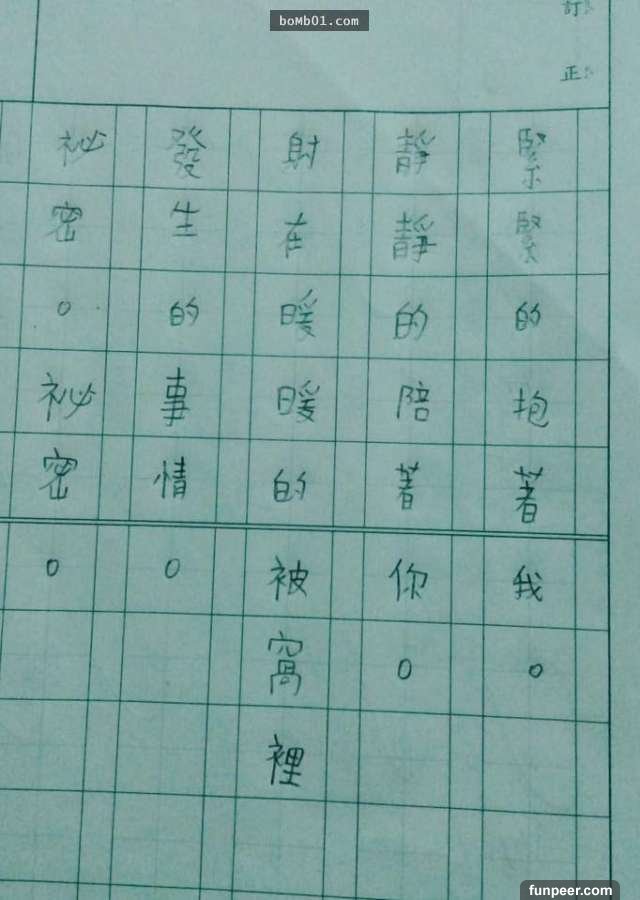 boMb01.com
訂
正
緊緊的抱著我。
靜靜的陪著你。
射在暖暖的被窩裡
發生的事情。
祕密。祕密。
funpeer.com